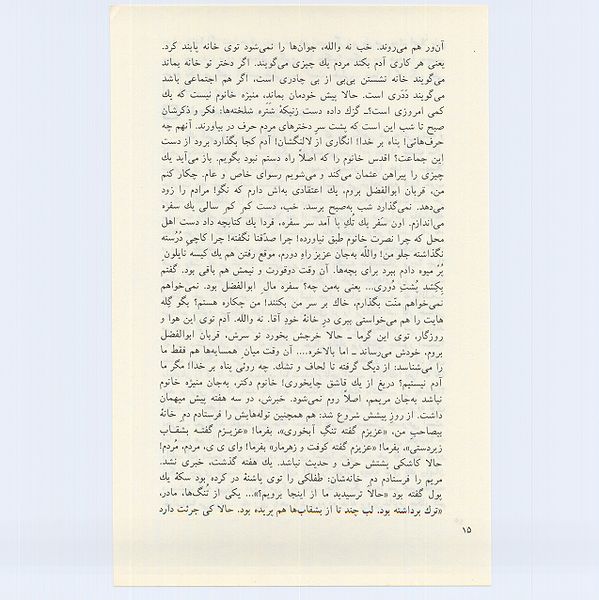 آن‌ور هم می‌روند. خب نه والله، جوان‌ها را نمی‌شود توی خانه پابند کرد.
یعنی هر کاری آدم بکند مردم یك چیزی می‌گویند. اگر دختر تو خانه بماند
می‌گویند خانه نشستن بی‌بی از بی چادری است، اگر هم اجتماعی باشد
می‌گویند دَدَری است. حالا پیش خودمان بماند، منیژه خانوم نیست که یك
کمی امروزی است؟ـ گزك داده دست زنیکهٔ شَتَره شلخته‌ها: فکر و ذکرشان
صبح تا شب این است که پشت سرِ دخترهای مردم حرف در بیاورند. آنهم چه
حرف‌هائی! پناه بر خدا! انگاری از لالتگشان! آدم کجا بگذارد برود از دست
این جماعت؟ اقدس خانوم را که اصلاً راه دستم نبود بگویم. باز می‌آید یك
چیزی را پیراهن عثمان می‌کند و می‌شویم رسوای خاص و عام. چکار کنم
من، قربان ابوالفضل بروم، یك اعتقادی به‌اش دارم که نگو! مرادم را زود
می‌دهد. نمی‌گذارد شب به‌صبح برسد. خب، دست کم کم سالی یك سفره
می‌اندازم. اون سَفَر یك تُك پا آمد سر سفره، فردا یك کتابچه داد دست اهل
محل که چرا نصرت خانوم طبق نیاورده! چرا صدّقنا نگفته! چرا کاچی دُرُسته
نگذاشته جلو من! والله به‌جان عزیز راهِ دورم، موقع رفتن هم یك کیسه نایلون
پُر میوه دادم ببرد برای بچه‌ها. آن وقت دوقورت و نیمش هم باقی بود. گفتم
بِکِشد پُشتِ دُوری... یعنی به‌من چه؟ سفره مالِ ابوالفضل بود. نمی‌خواهم
نمی‌خواهم منّت بگذارم، خاك بر سر من بکنند! من چکاره هستم؟ بگو گِله
هایت را هم می‌خواستی ببری درِ خانهٔ خودِ آقا. نه والله. آدم توی این هوا و
روزگار، توی این گرما ـ حالا خرجش بخورد تو سرش، قربان ابوالفضل
بروم، خودش می‌رساند ـ اما بالاخره.... آن وقت میانِ همسایه‌ها هم فقط ما
را می‌شناسد: از دیگ گرفته تا لحاف و تشك. چه روئی پناه بر خدا! مگر ما
آدم نیستیم؟ دریغ از یك قاشق چایخوری! خانوم دکتر، به‌جان منیژه خانوم
نباشد به‌جان مریمم، اصلاً روم نمی‌شود. خبرش، دو سه هفته پیش میهمان
داشت. از روزِ پیشش شروع شد: هم همچنین توله‌هایش را فرستادم دم خانهٔ
بیصاحبِ من، «عزیزم گفته تنگِ آبخوری»، بفرما! «عزیـزم گفتـه بشقـاب
زیردستی»، بفرما! «عزیزم گفته کوفت و زهرمار» بفرما! وای ی ی، مردم، مُردم!
حالا کاشکی پشتش حرف و حدیث نباشد. یك هفته گذشت، خبری نشد.
مریم را فرستادم دمِ خانه‌شان: طفلکی را توی پاشنهٔ در کرده بود سکهٔ یك
پول گفته بود «حالا ترسیدید ما از اینجا برویم؟»... یکی از تُنگ‌ها، مادر،
«ترك برداشته بود. لب چند تا از بشقاب‌ها هم پریده بود. حالا کی جرئت دارد
۱۵